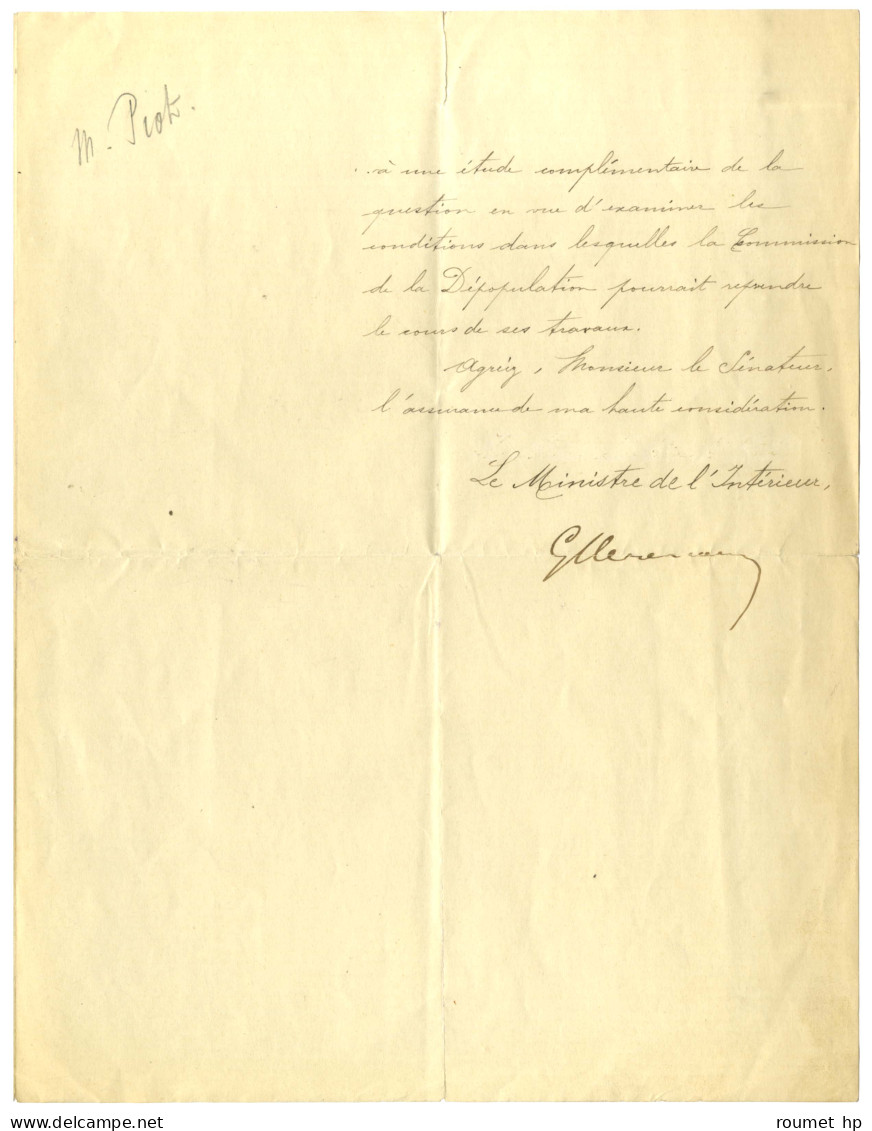 M. Piot.
..à une étude complémentaire de la
question en vue d'examiner les
conditions dans lesquelles la Commission
de la Dépopulation pourrait reprendre
le cours de ses travaux.
Agréez, Monsieur le Sénateur,
l'assurance de ma haute considération.
Le Ministre de l'Intérieur,
GClemenceau
delcampe.net
roumet hp